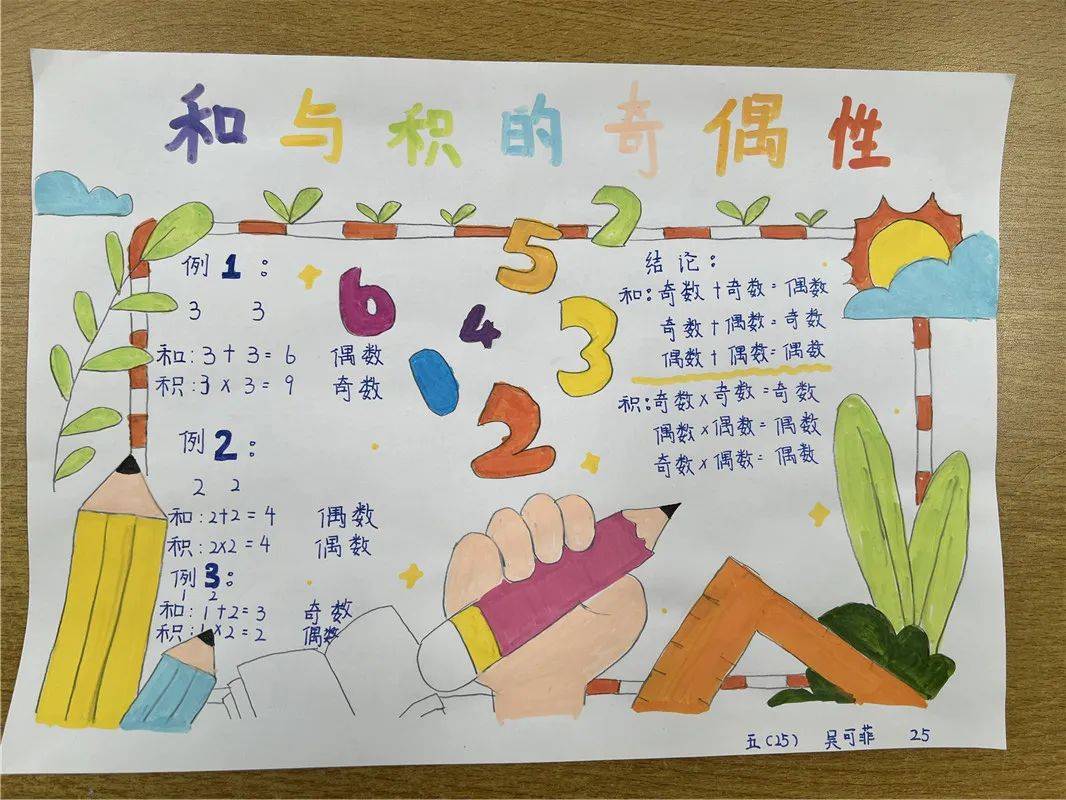 和与积的奇偶性
例1:
3 3
和:3+3=6 偶数
积:3×3=9 奇数
例2:
2 2
和:2+2=4 偶数
积:2×2=4 偶数
例3:
1 2
和:1+2=3 奇数
积:1×2=2 偶数
6
5
2
4
3
0
2
结论:
和:奇数+奇数=偶数
奇数+偶数=奇数
偶数+偶数=偶数
积:奇数×奇数=奇数
偶数×偶数=偶数
奇数×偶数=偶数
五(25) 吴可菲 25